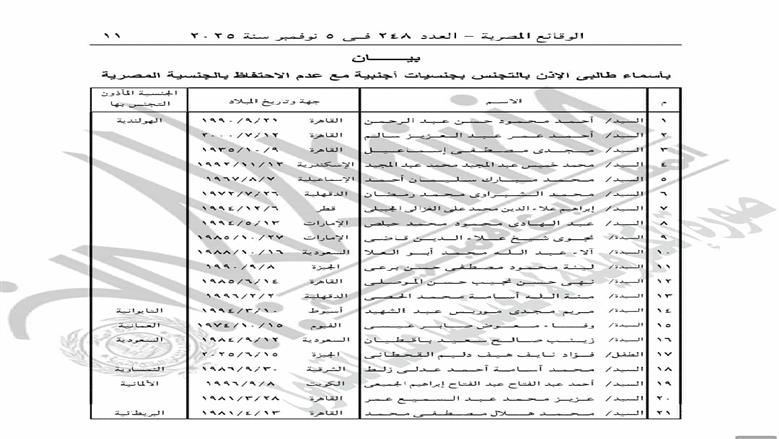 الوقائع المصرية - العدد ٢٤٨ فى ٥ نوفمبر سنة ٢٠٢٥ ١١
بيـــان
بأسماء طالبى الإذن بالتجنس بجنسيات أجنبية مع عدم الاحتفاظ بالجنسية المصرية
م الاســـم جهة وتاريخ الميلاد الجنسية المأذون التجنس بها
١ السيد/ أحمد محمود حسن عبد الرحمن القاهرة ١٩٩٠/٩/٢١ الهولندية
٢ السيد/ أحمد عمر عبد العزيز سالم القاهرة ٢٠٠٠/٧/١٢
٣ السيد/ مجدى مصطفى إسماعيل القاهرة ١٩٣٥/١٠/٩
٤ السيد/ محمد خميس عبد المجيد محمد عبد المجيد الإسكندرية ١٩٩٢/١١/١٣
٥ السيد/ محمد مبارك سلمان أحمد الإسماعيلية ١٩٦٧/٨/٧
٦ السيد/ محمد الشبراوى محمد رمضان الدقهلية ١٩٧٢/٧/٢٦
٧ السيد/ إبراهيم علاء الدين محمد على الغزالى الجبلى قطر ١٩٩٤/١٢/٦
٨ السيد/ عبد الهادى محمود محمد حلمى الإمارات ١٩٩٤/٥/١٣
٩ السيدة/ نجوى شيخ علاء الدين قاضى الإمارات ١٩٨٥/١٠/٢٧
١٠ السيدة/ آلاء عبد الله محمد أبو العلا السعودية ١٩٨٨/١٠/١٦
١١ السيدة/ لينة محمود مصطفى حسن برعى الجيزة ١٩٩٠/٩/٨
١٢ السيدة/ نهى حسن نجيب حسن الموصلى القاهرة ١٩٨٥/٦/١٤
١٣ السيدة/ منة الله أسامة محمد الحمى الدقهلية ١٩٩٦/٢/٢
١٤ السيدة/ مريم مجدى موريس عبد الشهيد أسيوط ١٩٩٤/٣/١٠ التايوانية
١٥ السيدة/ وفاء صفوت صابر موسى الفيوم ١٩٧٤/١٠/١٥ العمانية
١٦ السيدة/ زينب صالح سعيد باقطيان السعودية ١٩٨٤/٩/١٢ السعودية
١٧ الطفل/ فؤاد نايف هيف دليم القحطانى الجيزة ٢٠٢٥/٦/١٥
١٨ السيد/ محمد أسامة أحمد عدلى زلط الشرقية ١٩٨٦/٩/٣٠ النمساوية
١٩ السيد/ أحمد عبد الفتاح عبد الفتاح إبراهيم الجميعى الكويت ١٩٩٦/٩/٨ الألمانية
٢٠ السيد/ عزيز محمد عبد السميع عمر القاهرة ١٩٨١/٣/٢٨
٢١ السيد/ محمد هلال مصطفى محمد القاهرة ١٩٨١/٤/١٣ البريطانية